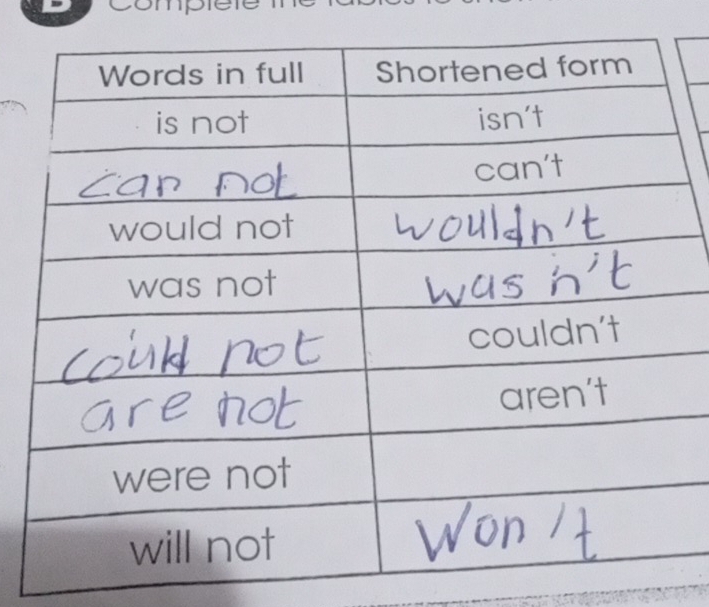 B Complete the tables to
Words in full Shortened form
is not isn't
can not can't
would not wouldn't
was not wasn't
could not couldn't
are not aren't
were not
will not won't